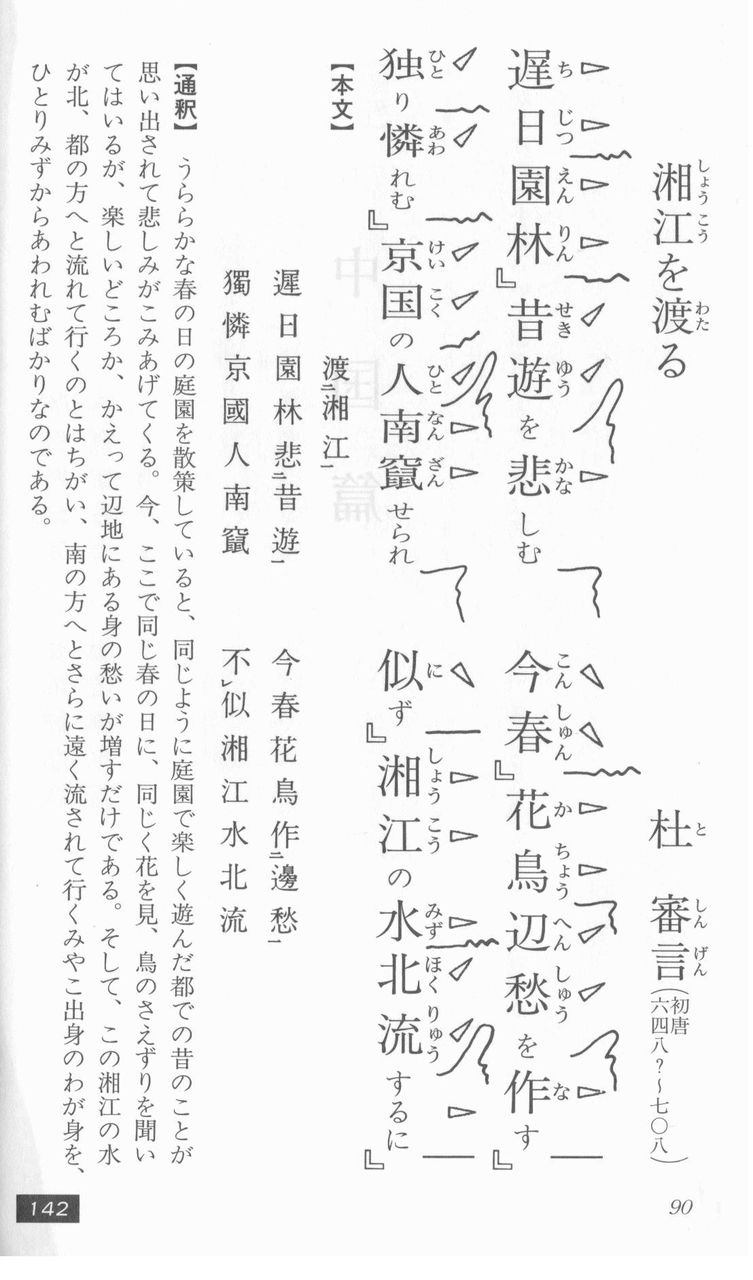 湘江を渡る
しょうこう わた
杜 審言(初唐 六四八?〜七〇八)
と しんげん
遅日園林』昔遊を悲しむ 今春』花鳥辺愁を作す』
ちじつえんりん せきゆう かな こんしゅん かちょうへんしゅう な
独り憐れむ』京国の人南竄せられ 似ず』湘江の水北流するに』
ひと あわ けいこく ひとなんざん に しょうこう みずほくりゅう
【本文】
渡二湘江一
遲日園林悲二昔遊一 今春花鳥作二邊愁一
獨憐京國人南竄 不レ似湘江水北流
【通釈】 うららかな春の日の庭園を散策していると、同じように庭園で楽しく遊んだ都での昔のことが
思い出されて悲しみがこみあげてくる。今、ここで同じ春の日に、同じく花を見、鳥のさえずりを聞い
てはいるが、楽しいどころか、かえって辺地にある身の愁いが増すだけである。そして、この湘江の水
が北、都の方へと流れて行くのとはちがい、南の方へとさらに遠く流されて行くみやこ出身のわが身を、
ひとりみずからあわれむばかりなのである。
142
90